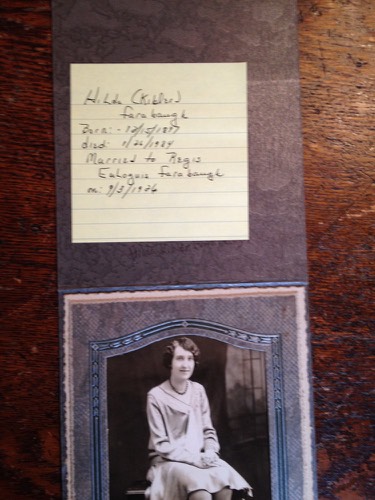 Hilda (Kibler)
Farabaugh
Born: - 12/15/1897
died: 1/26/1984
Married to Regis
Eulogius Farabaugh
on: 9/3/1926